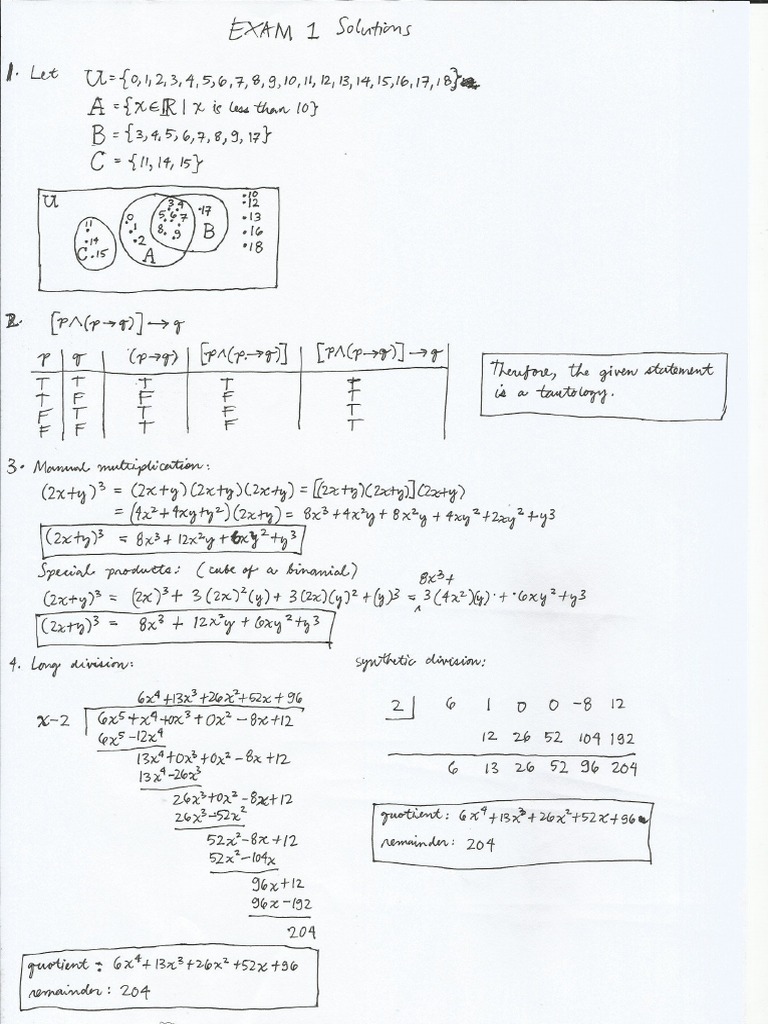 EXAM 1 Solutions
1. Let U = {0,1,2,3,4,5,6,7,8,9,10,11,12,13,14,15,16,17,18}
A = {x∈ℝ | x is less than 10}
B = {3,4,5,6,7,8,9,17}
C = {11,14,15}
U
•10
•12
•13
•16
•18
11
•14
C •15
0
1
•2
A
3 4
5 6 7
8 9
•17
B
2. [p∧(p→q)]→q
p | q | (p→q) | [p∧(p→q)] | [p∧(p→q)]→q
T | T | T | T | T
T | F | F | F | T
F | T | T | F | T
F | F | T | F | T
Therefore, the given statement
is a tautology.
3. Manual multiplication:
(2x+y)³ = (2x+y)(2x+y)(2x+y) = [(2x+y)(2x+y)](2x+y)
= (4x²+4xy+y²)(2x+y) = 8x³+4x²y+8x²y+4xy²+2xy²+y³
(2x+y)³ = 8x³+12x²y+6xy²+y³
Special products: (cube of a binomial)
8x³+
(2x+y)³ = (2x)³+3(2x)²(y)+3(2x)(y)²+(y)³ = 3(4x²)(y)+6xy²+y³
(2x+y)³ = 8x³+12x²y+6xy²+y³
4. Long division:
6x⁴+13x³+26x²+52x+96
x-2 6x⁵+x⁴+0x³+0x²-8x+12
6x⁵-12x⁴
13x⁴+0x³+0x²-8x+12
13x⁴-26x³
26x³+0x²-8x+12
26x³-52x²
52x²-8x+12
52x²-104x
96x+12
96x-192
204
quotient: 6x⁴+13x³+26x²+52x+96
remainder: 204
synthetic division:
2 6 1 0 0 -8 12
12 26 52 104 192
6 13 26 52 96 204
quotient: 6x⁴+13x³+26x²+52x+96
remainder: 204